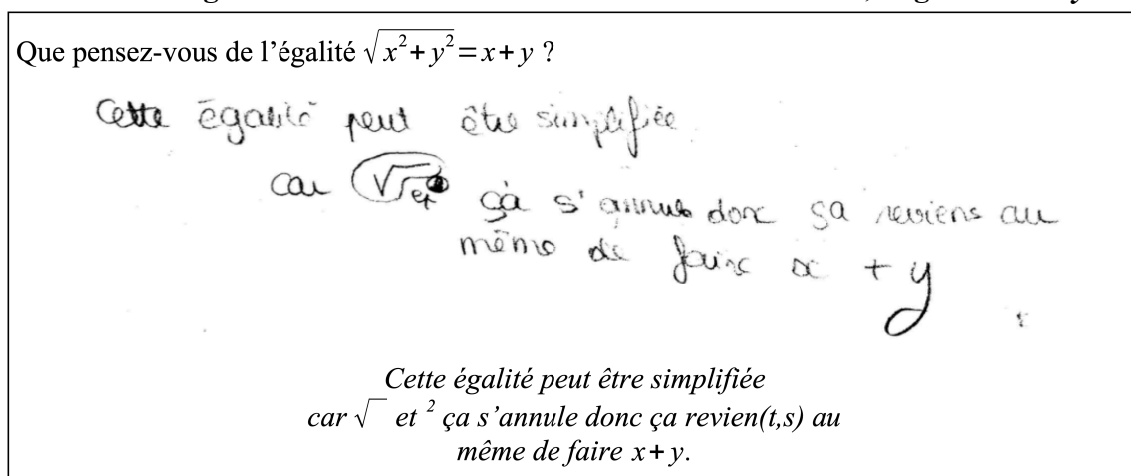 Que pensez-vous de l'égalité √x²+y²=x+y ?
Cette égalité peut être simplifiée
car √ et ² ça s'annule donc ça reviens au
même de faire x + y
Cette égalité peut être simplifiée
car √ et ² ça s'annule donc ça revien(t,s) au
même de faire x+y.